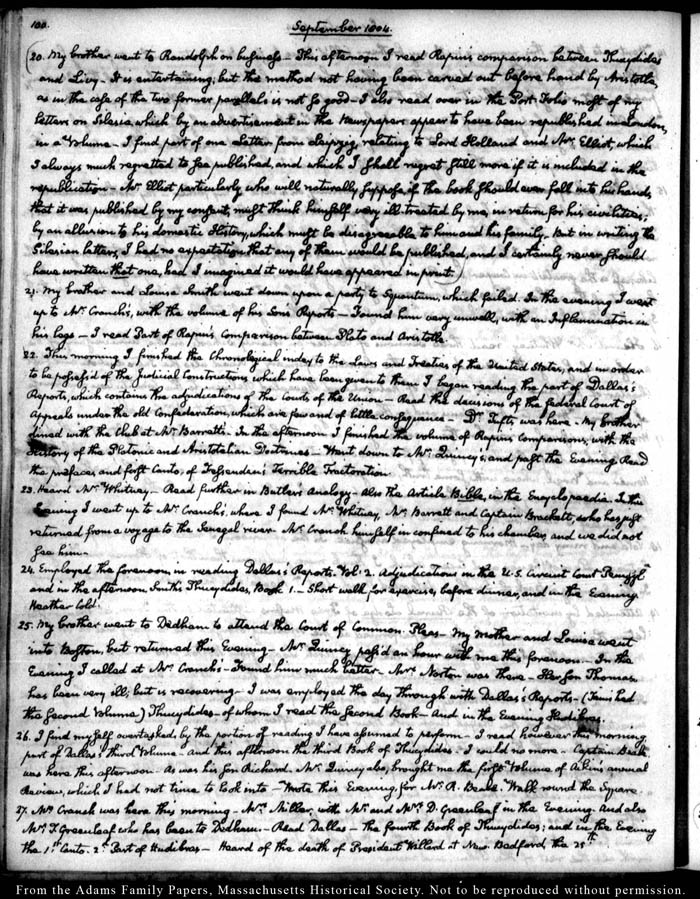 100.
September 1804.
20. My brother went to Randolph on business — This afternoon I read Rapin's comparison between Thucydides
and Livy — It is entertaining; but the method not having been carved out before hand by Aristotle,
as in the case of the two former parallels is not so good — I also read over in the Port Folio most of my
letters on Silesia, which by an advertisement in the Newspaper appear to have been republished in London,
in a Volume — I find part of one Letter from Leipzig, relating to Lord Holland and Mr. Elliot, which
I always much regretted to see published, and which I shall regret still more if it is included in the
republication — Mr. Elliot particularly who will naturally suppose if the book should ever fall into his hands,
that it was published by my consent, must think himself very ill-treated by me, in return for his civilities;
by an allusion to his domestic History, which must be disagreeable to him and his family. But in writing the
Silesian letters, I had no expectation that any of them would be published, and I certainly never should
have written that one, had I imagined it would have appeared in print.
21. My brother and Louisa Smith went down upon a party to Squantum, which failed. In the evening I went
up to Mr. Cranch's, with the volume of his Son's Reports — Found him very unwell, with an Inflammation in
his legs — I read Part of Rapin's Comparison between Plato and Aristotle.
22. This morning I finished the Chronological index to the Laws and Treaties of the United States, and in order
to be possess'd of the Judicial Constructions which have been given to them I began reading the part of Dallas's
Reports, which contains the adjudications of the Courts of the Union — Read the decisions of the federal Court of
Appeals under the old Confederation, which are few and of little consequence — Dr. Tufts was here — My brother
dined with the club at Mr. Barrett's. In the afternoon I finished the volume of Rapin's Comparisons, with the
History of the Platonic and Aristotelian Doctrines — Went down to Mr. Quincy's; and past the Evening. Read
the prefaces and first Canto, of Fessenden's Terrible Tractoration.
23. Heard Mr. Whitney — Read further in Butler's Analogy — also the Article Bible, in the Encyclopaedia. In the
Evening I went up to Mr. Cranch's, where I found Mr. Whitney, Mr. Barrett and Captain Brackett, who has just
returned from a voyage to the Senegal river — Mr. Cranch himself is confined to his chamber, and we did not
see him —
24. Employed the forenoon in reading Dallas's Reports. Vol: 2. Adjudications in the U.S. Circuit Court
and in the afternoon Smith's Thucydides, Book 1. — Short walk for exercise, before dinner, and in the Evening.
Weather Cold.
25. My brother went to Dedham to attend the Court of Common Pleas — My Mother and Louisa went
into Boston, but returned this Evening — Mr. Quincy pass'd an hour with me this forenoon — In the
Evening I called at Mr. Cranch's — Found him much better — Mrs. Norton was there — Her Son Thomas
has been very ill; but is recovering — I was employed the day through with Dallas's Reports — (Finished
the Second Volume) Thucydides — of whom I read the Second Book — And in the Evening Hudibras.
26. I find myself overtasked, by the portion of reading I have assumed to perform — I read however this morning
part of Dallas's third Volume — And this afternoon the third Book of Thucydides — I could no more — Captain Beale
was here this afternoon — As was his Son Richard. Mr. Quincy also, brought me the first Volume of Aikin's annual
Review, which I had not time to look into — Wrote this Evening for Mr. R. Beale. Walk round the Square.
27. Mr. Cranch was here this morning — Mrs. Miller, with Mr. and Mrs. D. Greenleaf in the Evening. And also
Mr. T. Greenleaf who has been to Dedham — Read Dallas — the fourth Book of Thucydides; and in the Evening
the 1st Canto. 2d Part of Hudibras — Heard of the death of President Willard at New Bedford, the 25th.
From the Adams Family Papers, Massachusetts Historical Society. Not to be reproduced without permission.